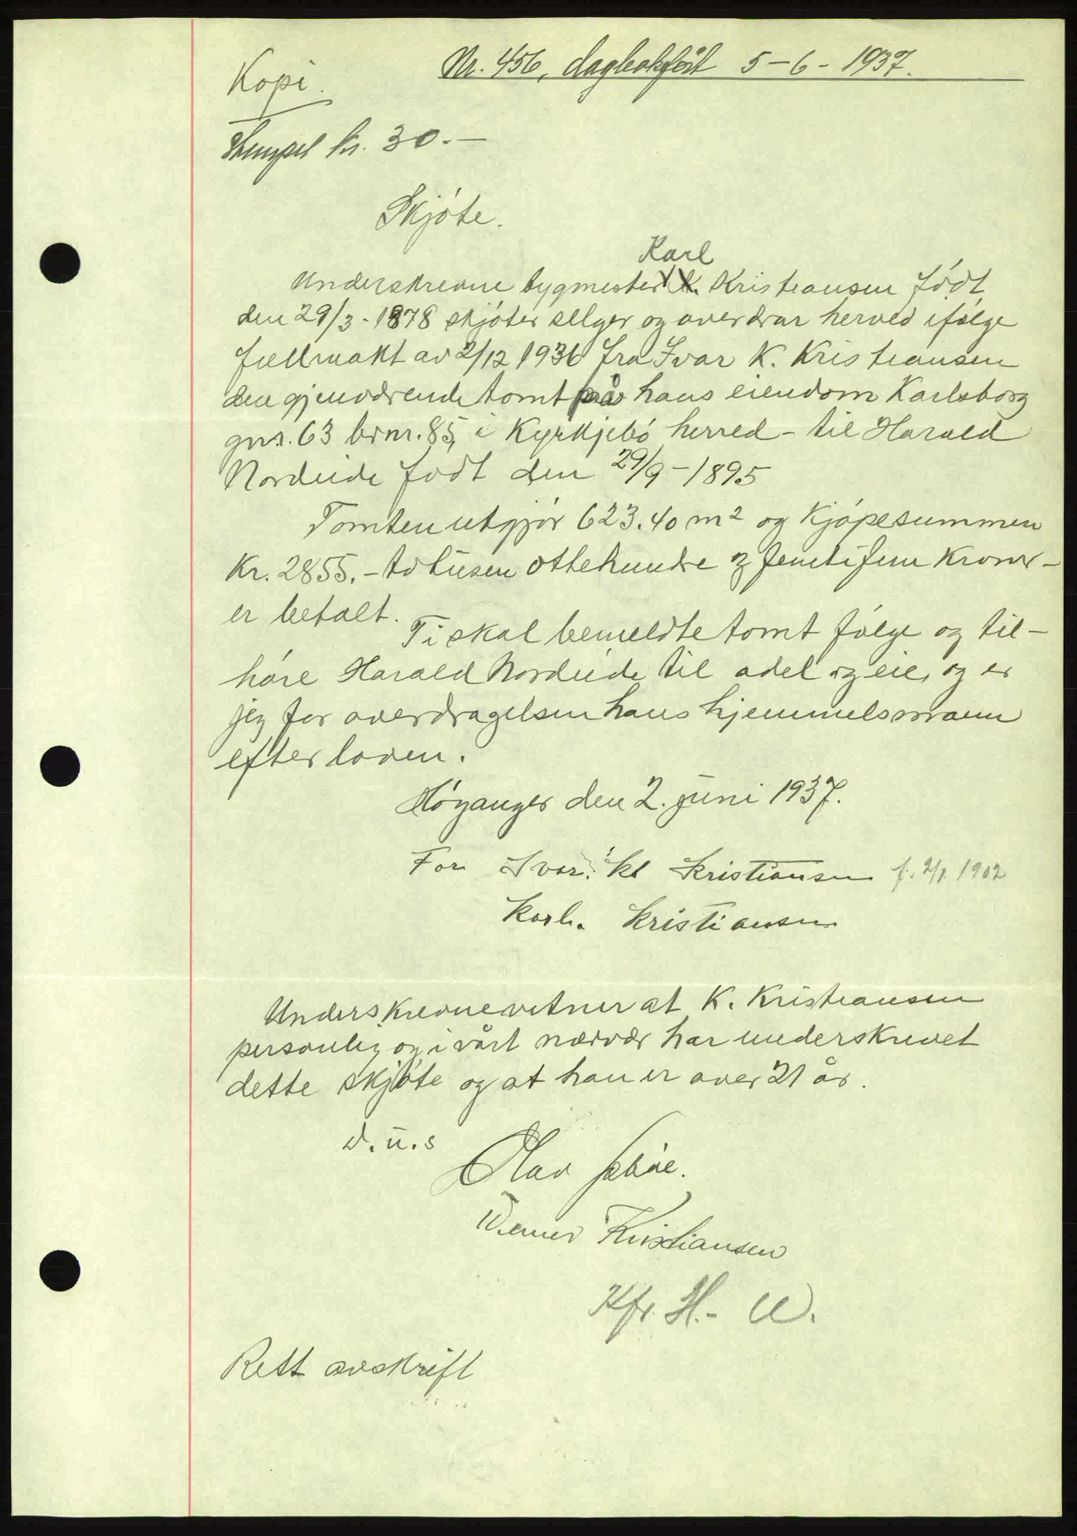 Nr. 456, dagbokført 5-6-1937.
Kopi.
Stempel kr. 30.-
Skjøte.
Karl
Underskrevne bygmester K. Kristiansen født
den 29/3-1878 skjøter selger og overdrar herved ifølge
fullmakt av 2/12 1936 fra Ivar K. Kristiansen
den gjenværende tomt på hans eiendom Karlsborg
gnr. 63 brnr. 85, i Kyrkjebø herred - til Harald
Nordeide født den 29/9-1895
Tomten utgjør 623.40 m² og kjøpesummen
Kr. 2855.- totusen ottehundre og femtifem kroner -
er betalt.
Ti skal bemeldte tomt følge og til-
høre Harald Nordeide til odel og eie, og er
jeg for overdragelsen hans hjemmelsmann
efter loven.
Høyanger den 2. juni 1937.
For Ivar Kristiansen f. 2/1 1902
Karl. Kristiansen
Underskrevne vitner at K. Kristiansen
personlig og i vårt nærvær har underskrevet
dette skjøte og at han er over 21 år.
d.u.s
Olav
Werner Kristiansen
Kfr. H.- W.
Rett avskrift